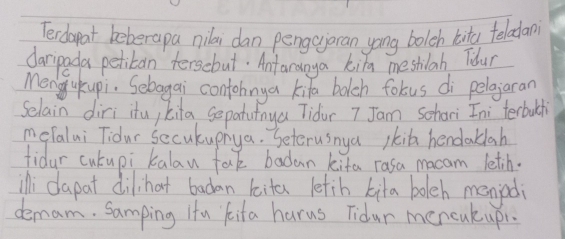 Terdapat beberapa nilai dan pengajaran yang boleh kita teladani
daripada petikan tersebut. Antaranya kita mestilah Tidur
Mencukupi. Sebagai contohnya kita boleh fokus di pelajaran
Selain diri itu, kita sepatutnya Tidur 7 Jam Sehari Ini terbukti
melalui Tidur Secukupnya. Seterusnya, kita hendaklah
tidur cukupi kalau tak badan kita rasa macam letih.
ini dapat dilihat badan kita letih kita boleh menjadi
demam. Samping itu kita harus Tidur mencukupi.